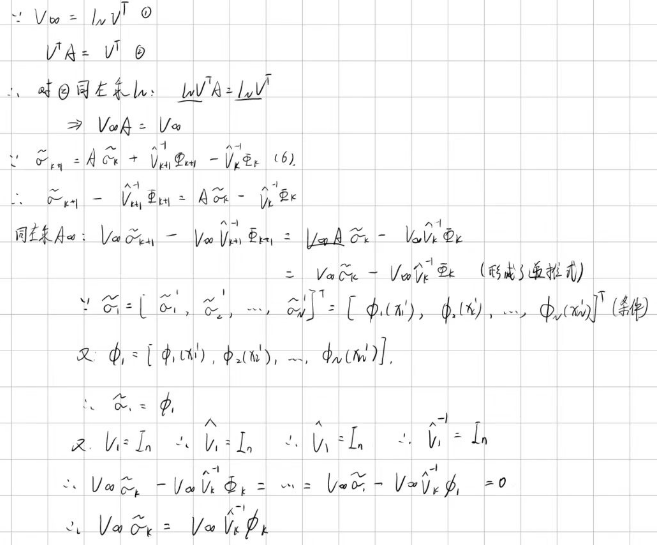 ∵ V∞ = 1_N V^T ①
V^T A = V^T ②
∴ 对②同左乘1_N: 1_N V^T A = 1_N V^T
⇒ V∞A = V∞
∵ σ̃_{k+1} = A σ̃_k + V̂_{k+1}^{-1} Φ_{k+1} - V̂_k^{-1} Φ_k (6).
∴ σ̃_{k+1} - V̂_{k+1}^{-1} Φ_{k+1} = A σ̃_k - V̂_k^{-1} Φ_k
同左乘A∞: V∞ σ̃_{k+1} - V∞ V̂_{k+1}^{-1} Φ_{k+1} = V∞A σ̃_k - V∞ V̂_k^{-1} Φ_k
= V∞ σ̃_k - V∞ V̂_k^{-1} Φ_k (形成了递推式)
∵ σ̃_1 = [σ̃_1^1, σ̃_2^1, ..., σ̃_N^1]^T = [ϕ_1(x_1^1), ϕ_2(x_2^1), ..., ϕ_N(x_N^1)]^T (条件)
又 ϕ_1 = [ϕ_1(x_1^1), ϕ_2(x_2^1), ..., ϕ_N(x_N^1)].
∴ σ̃_1 = ϕ_1
又 V_1 = I_n ∴ V̂_1 = I_n ∴ V̂_1 = I_n ∴ V̂_1^{-1} = I_n
∴ V∞ σ̃_k - V∞ V̂_k^{-1} Φ_k = ... = V∞ σ̃_1 - V∞ V̂_k^{-1} ϕ_1 = 0
∴ V∞ σ̃_k = V∞ V̂_k^{-1} ϕ_k